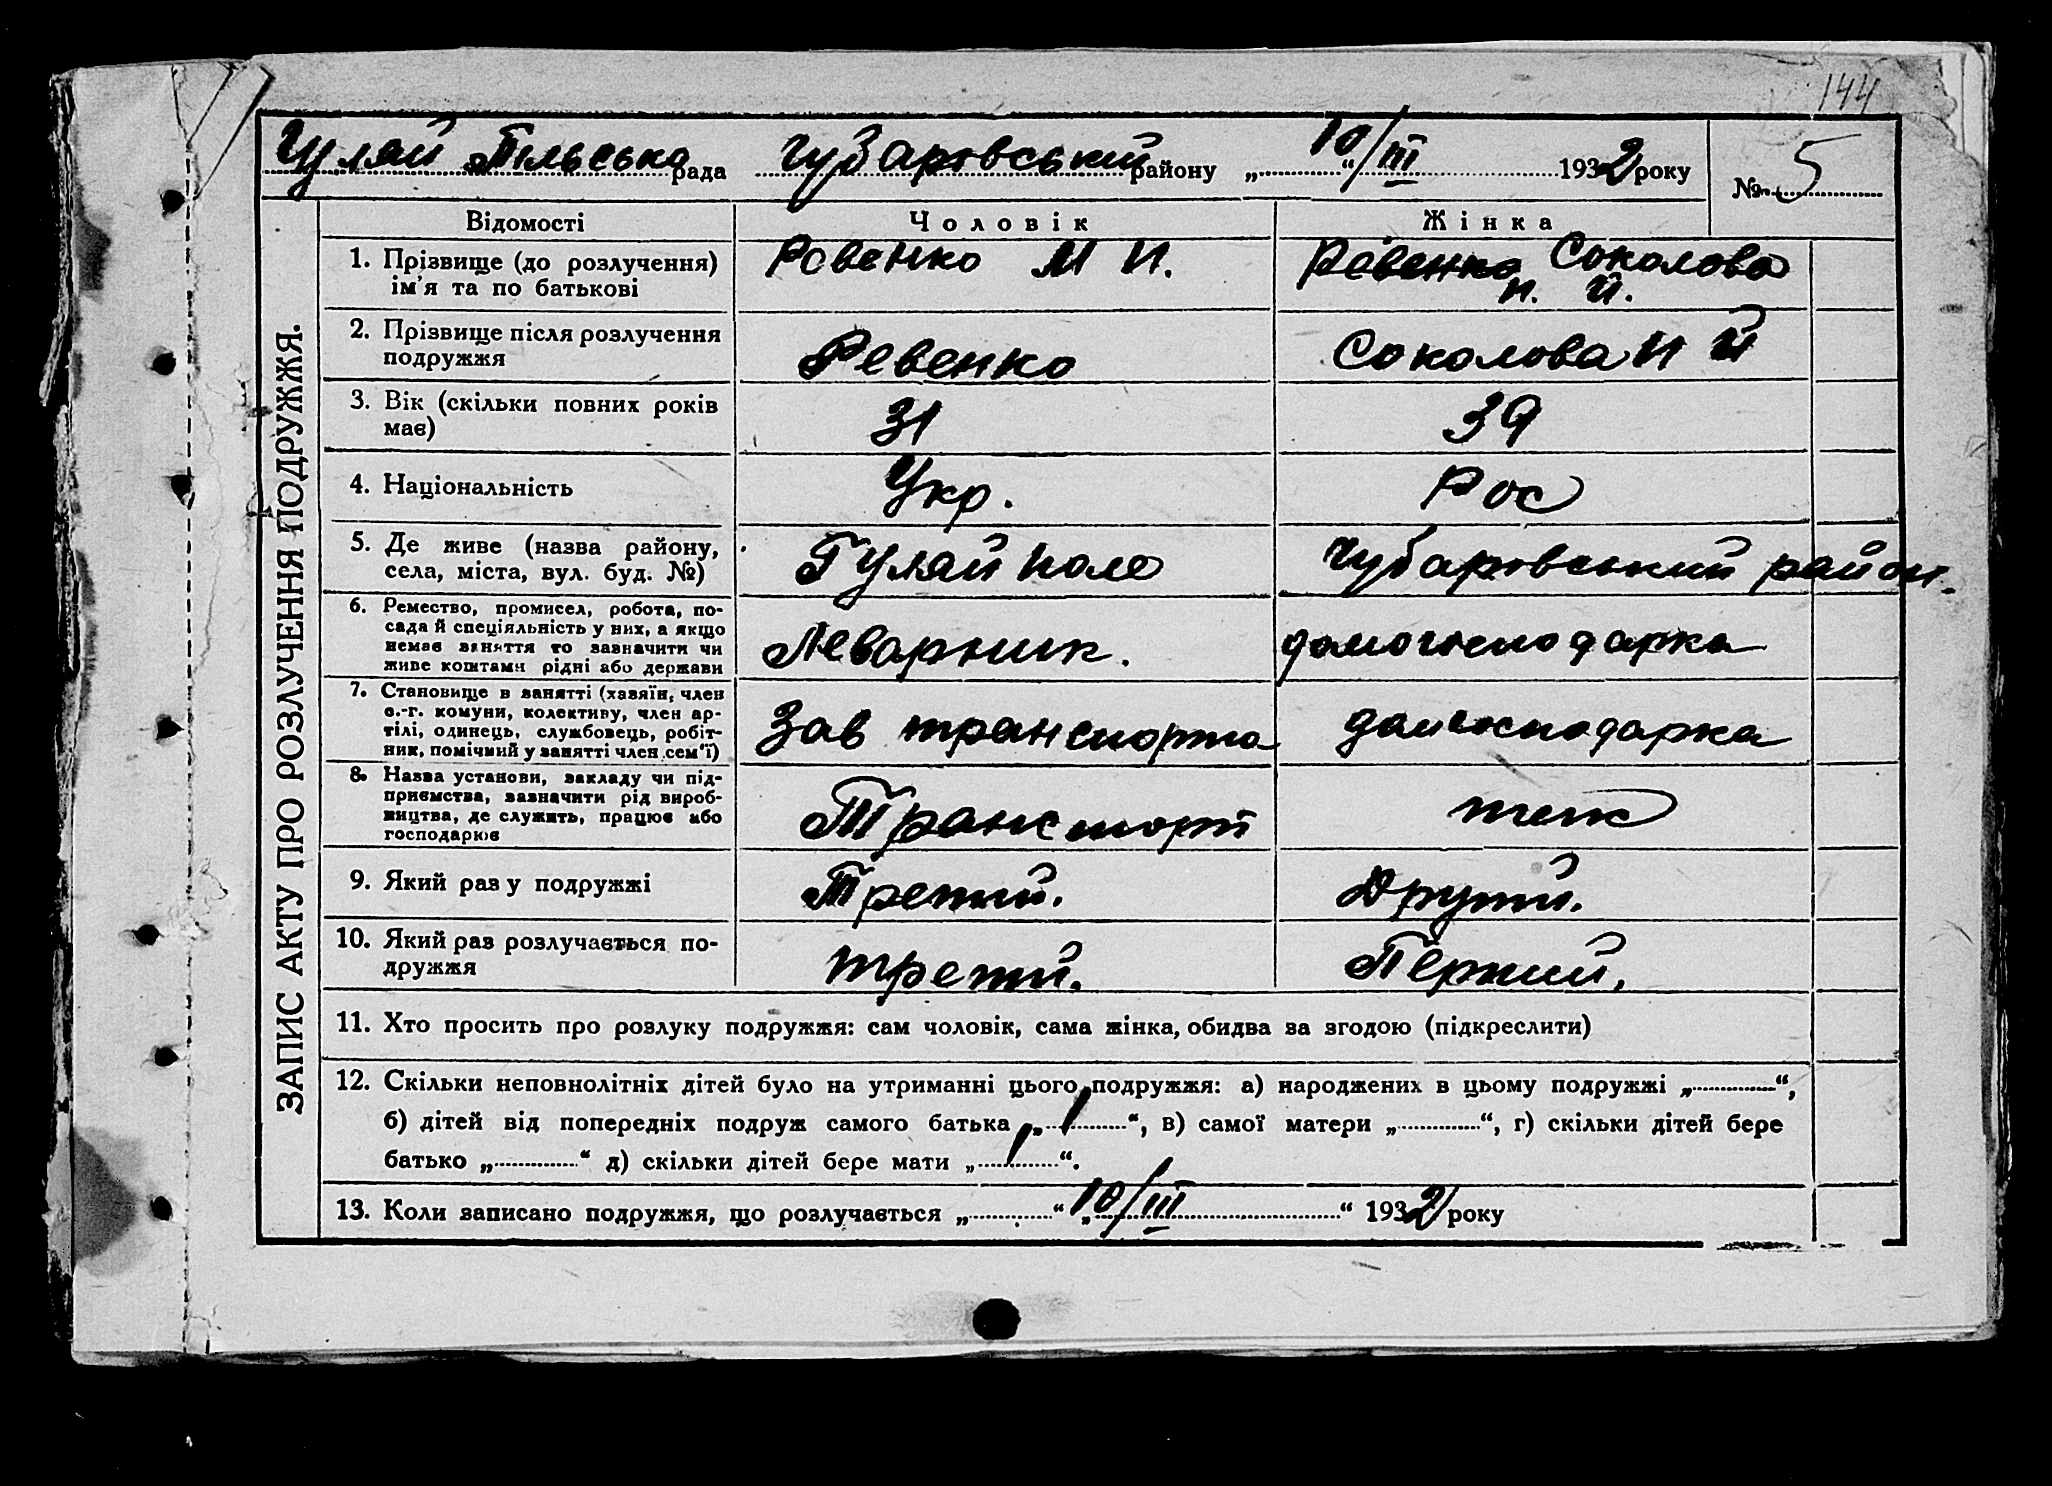 144
Гуляй Пільська рада Чубаровський району „10/III“ 1932 року № 5
ЗАПИС АКТУ ПРО РОЗЛУЧЕННЯ ПОДРУЖЖЯ.
Відомості Чоловік Жінка
1. Прізвище (до розлучення) Ревенко М И. Ревенко Соколова
ім'я та по батькові Н. Й.
2. Прізвище після розлучення
подружжя Ревенко Соколова Н Й
3. Вік (скільки повних років
має) 31 39
4. Національність Укр. Рос
5. Де живе (назва району, Гуляй поле Чубаровський район.
села, міста, вул. буд. №)
6. Ремество, промисел, робота, по-
сада й спеціяльність у них, а якщо
немає заняття то зазначити чи Леварник. домогосподарка
живе коштами рідні або держави
7. Становище в занятті (хазяїн, член
с.-г. комуни, колективу, член ар-
тілі, одинець, службовець, робіт- Зав транспорта домгосподарка
ник, помічний у занятті член сем'ї)
8. Назва установи, закладу чи під-
приємства, зазначити рід вироб-
ництва, де служить, працює або Транспорт
господарює
9. Який раз у подружжі Третий. Другий.
10. Який раз розлучається по-
дружжя третий. Перший.
11. Хто просить про розлуку подружжя: сам чоловік, сама жінка, обидва за згодою (підкреслити)
12. Скільки неповнолітніх дітей було на утриманні цього подружжя: а) народжених в цьому подружжі „............“,
б) дітей від попередніх подруж самого батька „ 1 “, в) самої матери „............“, г) скільки дітей бере
батько „............“ д) скільки дітей бере мати „ 1 “.
13. Коли записано подружжя, що розлучається „............“ „10/III“ 1932 року